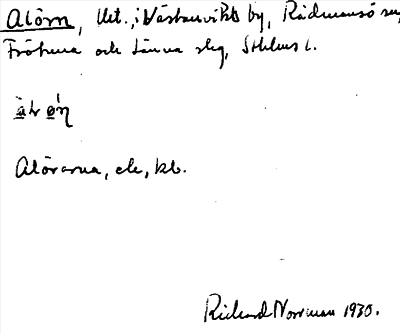 Alörn, Urt., i Västansviks by, Rådmansö sn,
Fröhuna och Länna slg, Sthlms l.
Alörarna, ek, kb.
Richard Norrman 1930.